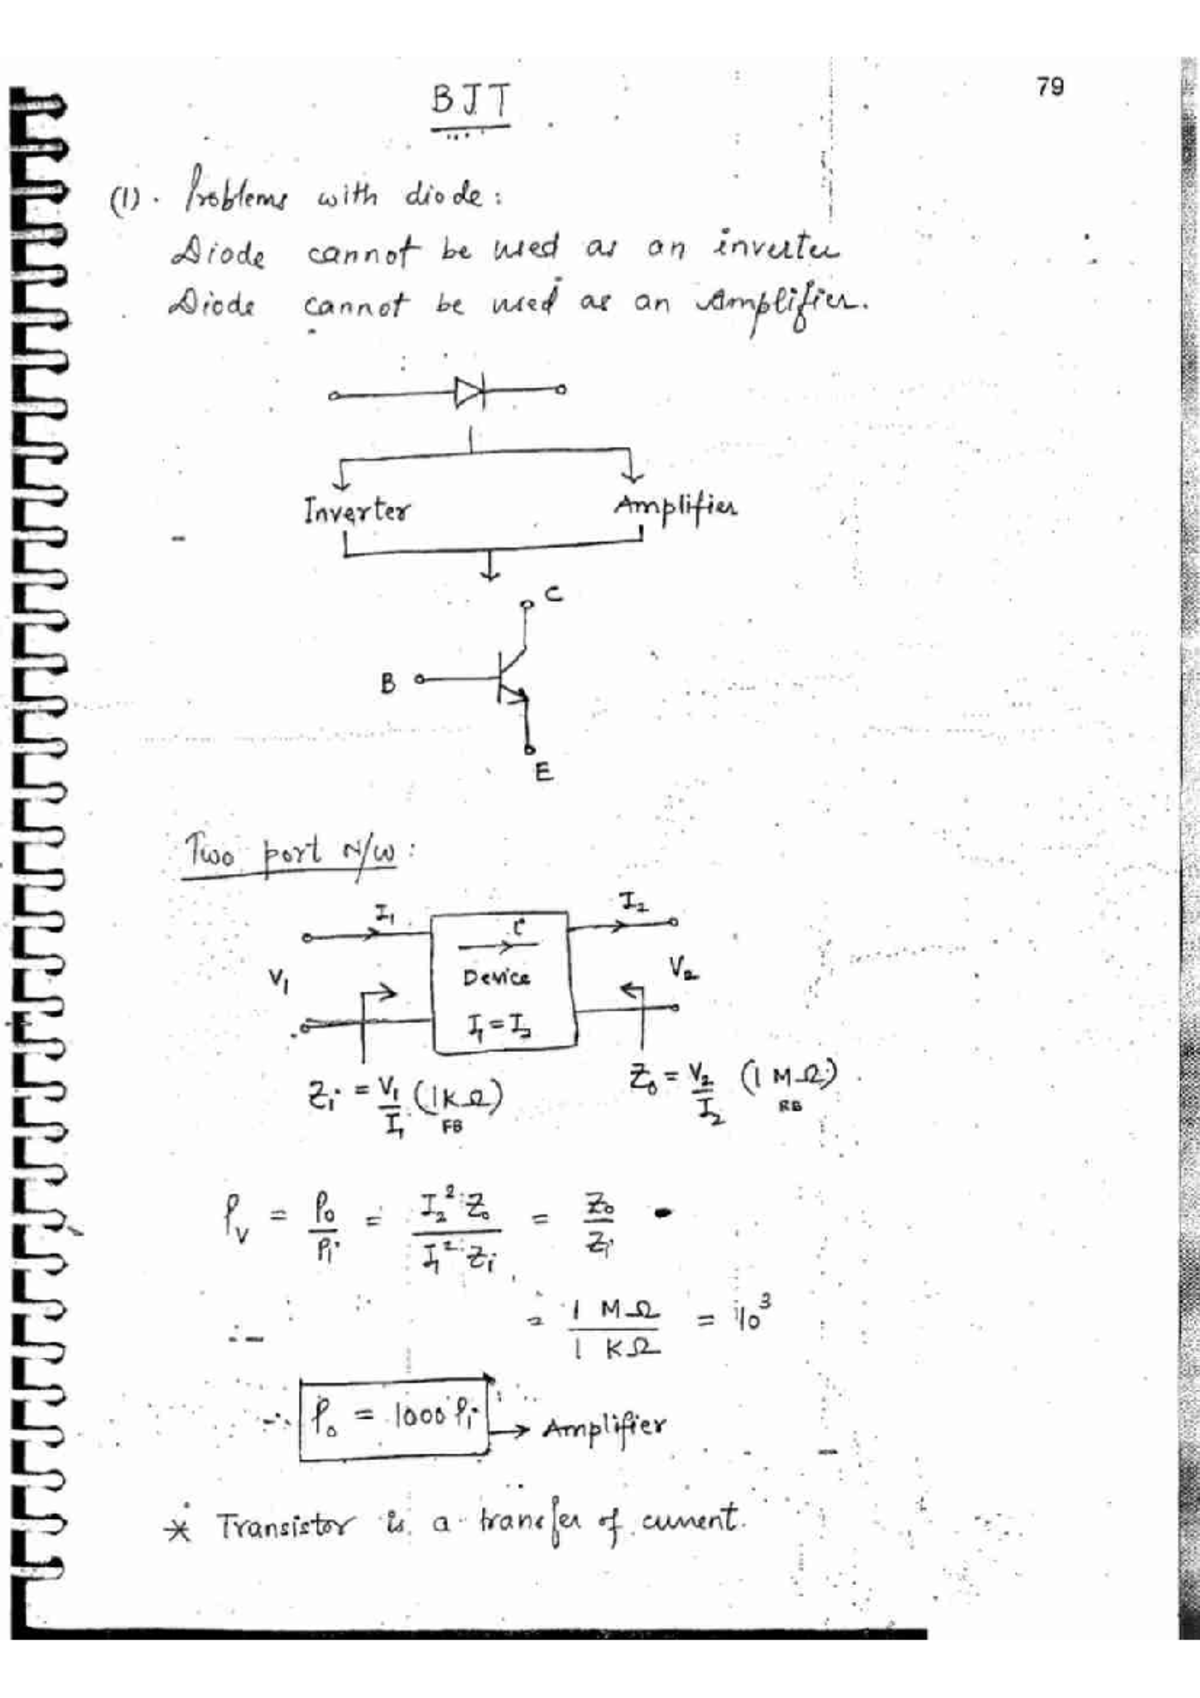 79
BJT
(1). Problems with diode:
Diode cannot be used as an inverter
Diode cannot be used as an Amplifier.
Inverter Amplifier
C
B
E
Two port N/W:
I₁ I₂
V₁ Device V₂
I₁ = I₂
Zi = V₁/I₁ (1KΩ) Z₀ = V₂/I₂ (1 MΩ)
FB RB
Pv = P₀/Pi = I₂² Z₀ / I₁² Zi = Z₀/Zi
= 1 MΩ / 1 KΩ = 10³
∴ P₀ = 1000 Pi → Amplifier
* Transistor is a transfer of current.